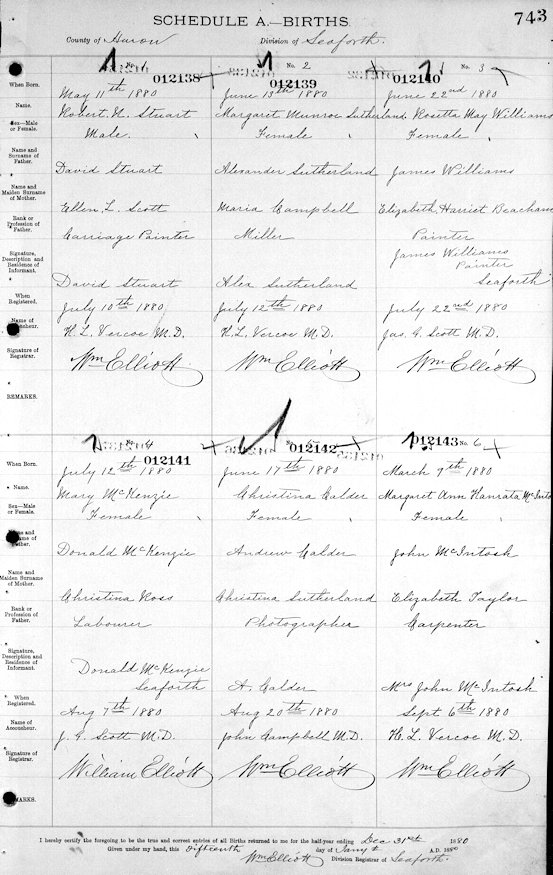 743
SCHEDULE A.—BIRTHS.
County of Huron Division of Seaforth.
No. 1 No. 2 No. 3
012138 012139 012140
When Born. May 11th 1880 June 13th 1880 June 22nd 1880
Name. Robert. N. Stuart Margaret Munroe Sutherland Rosetta May Williams
Sex—Male or Female. Male. Female Female
Name and Surname of Father. David Stuart Alexander Sutherland James Williams
Name and Maiden Surname of Mother. Ellen. L. Scott Maria Campbell Elizabeth Harriet Beacham
Rank or Profession of Father. Carriage Painter Miller Painter
Signature, Description and Residence of Informant. David Stuart Alex Sutherland James Williams Painter Seaforth
When Registered. July 10th 1880 July 12th 1880 July 22nd 1880
Name of H. L. Vercoe M.D. H. L. Vercoe M.D. Jas. G. Scott M.D.
Signature of Registrar. Wm Elliott Wm Elliott Wm Elliott
REMARKS.
No. 4 No. No. 6
012141 012142 012143
When Born. July 12th 1880 June 17th 1880 March 7th 1880
Name. Mary McKenzie Christina Calder Margaret Ann
Sex—Male or Female. Female Female Female
Donald McKenzie Andrew Calder John McIntosh
Name and Maiden Surname of Mother. Christina Ross Christina Sutherland Elizabeth Taylor
Rank or Profession of Father. Labourer Photographer Carpenter
Signature, Description and Residence of Informant. Donald McKenzie Seaforth A. Calder Mrs John McIntosh
When Registered. Aug 7th 1880 Aug 20th 1880 Sept 6th 1880
Name of Accoucheur. J. G. Scott M.D. John Campbell M.D. H. L. Vercoe M.D.
Signature of Registrar. William Elliott Wm Elliott Wm Elliott
I hereby certify the foregoing to be the true and correct entries of all Births returned to me for the half-year ending Dec 31st 1880
Given under my hand, this Fifteenth day of A.D. 1880
Wm Elliott Division Registrar of Seaforth.